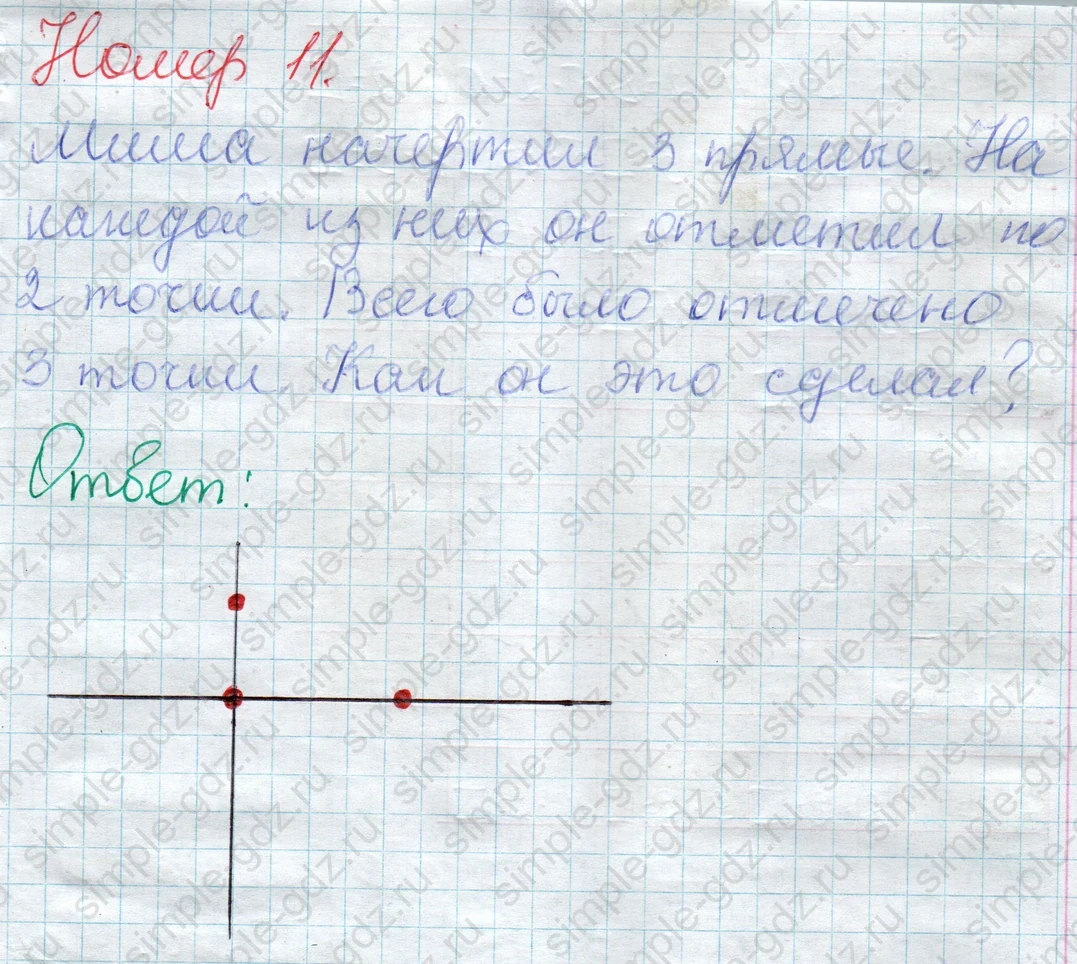 Номер 11.
Миша начертил 3 прямые. На
каждой из них он отметил по
2 точки. Всего было отмечено
3 точки. Как он это сделал?
Ответ:
simple-gdz.ru